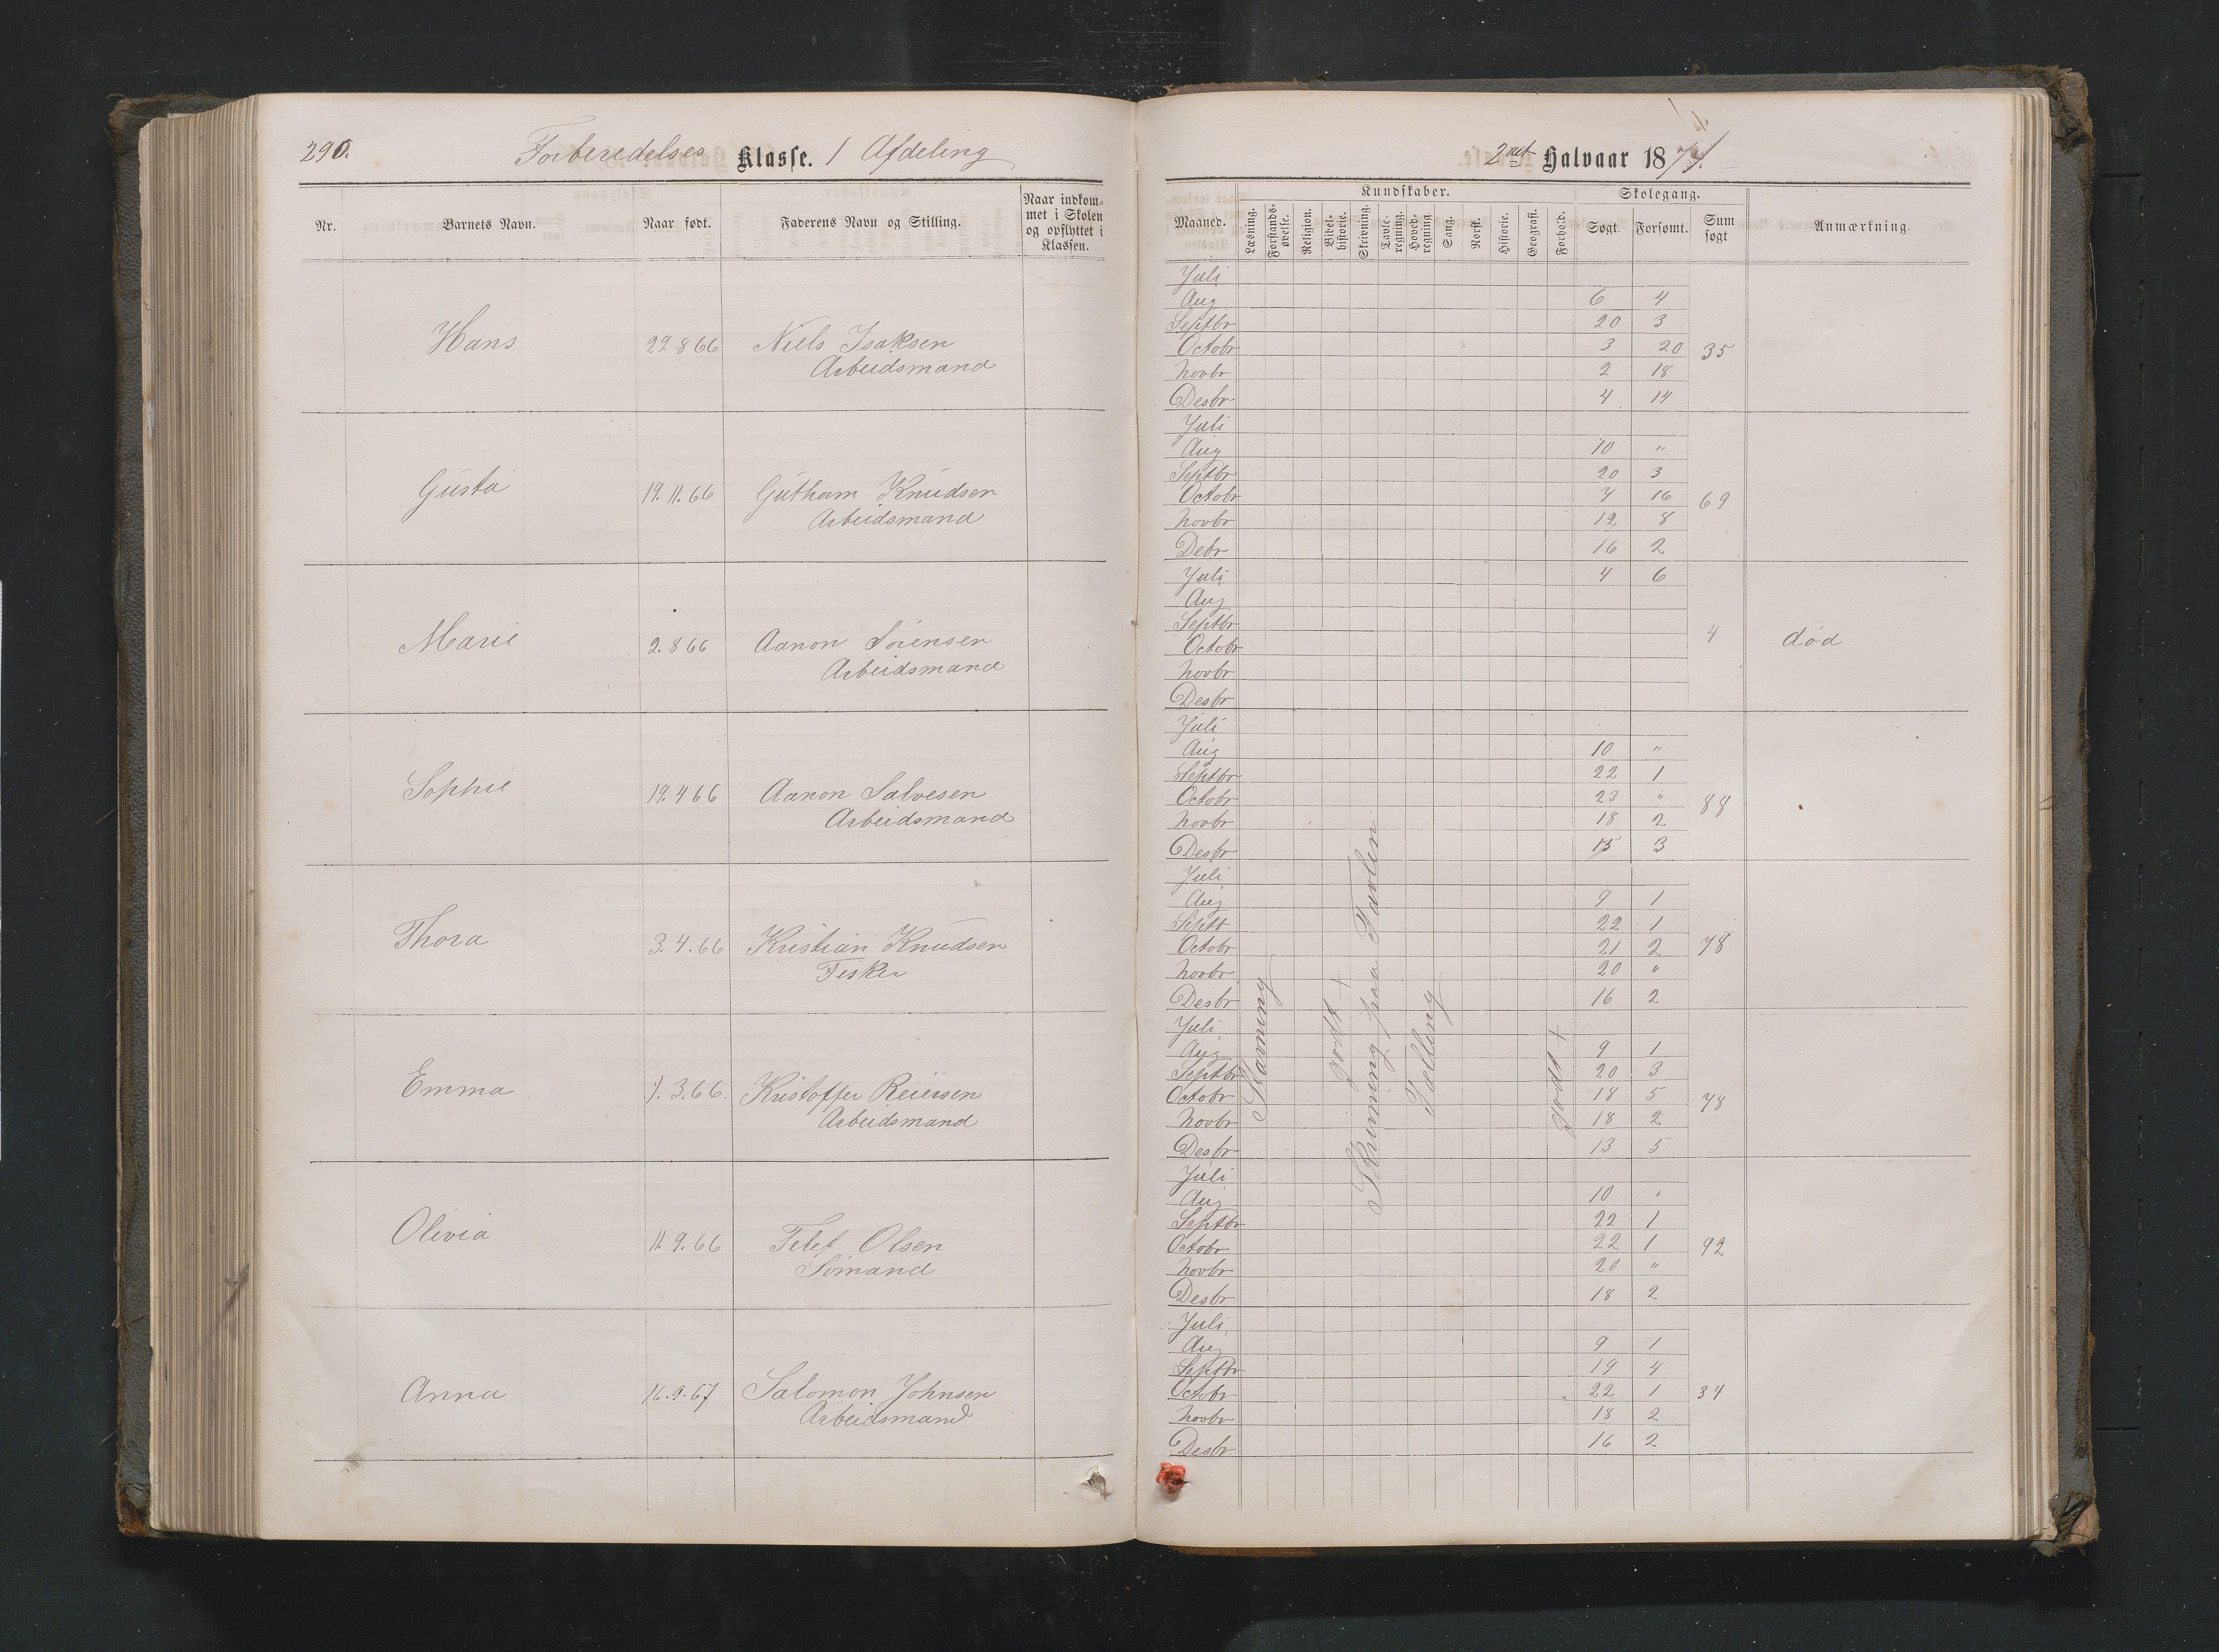 290.
Forberedelses Klasse. 1 Afdeling
Nr.
Barnets Navn.
Naar født.
Faderens Navn og Stilling.
Naar indkom-
met i Skolen
og opflyttet i
Klassen.
Hans 22.8 66 Niels Isaksen
Arbeidsmand
Gusta 19.11.66 Gutham Knudsen
Arbeidsmand
Marie 2.8 66 Aanon Sørensen
Arbeidsmand
Sophie 19.4 66 Aanon Salvesen
Arbeidsmand
Thora 3.4.66 Kristian Knudsen
Fisker
Emma 3.66. Kristoffer Reiersen
Arbeidsmand
Olivia 11.9.66 Telef Olsen
Sømand
Anna 16.9.67 Salomon Johnsen
Arbeidsmand
2det Halvaar 1874.
Maaned.
Kundskaber.
Læsning.
Forstands-
øvelse.
Religion.
Bibel-
historie.
Skrivning.
Tavle-
regning.
Hoved-
regning
Sang.
Norsk.
Historie.
Geografi.
Forhold.
Skolegang.
Søgt.
Forsømt.
Sum
søgt
Anmærkning.
Juli
Aug 6 4
Septbr 20 3
Octobr 3 20 35
Novbr 2 18
Desbr 4 14
Juli
Aug 10 "
Septbr 20 3
Octobr 7 16 69
Novbr 12 8
Debr 16 2
Juli 4 6
Aug
Septbr
Octobr 4 død
Novbr
Desbr
Juli
Aug 10 "
Septbr 22 1
Octobr 23 " 88
Novbr 18 2
Desbr 15 3
Juli
Aug 9 1
Septb 22 1
Octobr 21 2 78
Novbr 20 "
Desbr 16 2
Juli
Aug 9 1
Septbr 20 3
Octobr 18 5 78
Novbr 18 2
Desbr 13 5
Juli
Aug 10 "
Septbr 22 1
Octobr 22 1 92
Novbr 20 "
Desbr 18 2
Juli
Aug 9 1
Septbr 19 4
Octobr 22 1 84
Novbr 18 2
Desbr 16 2
Stavning
godt +
Skrivning paa Tavlen
Tælling
godt +